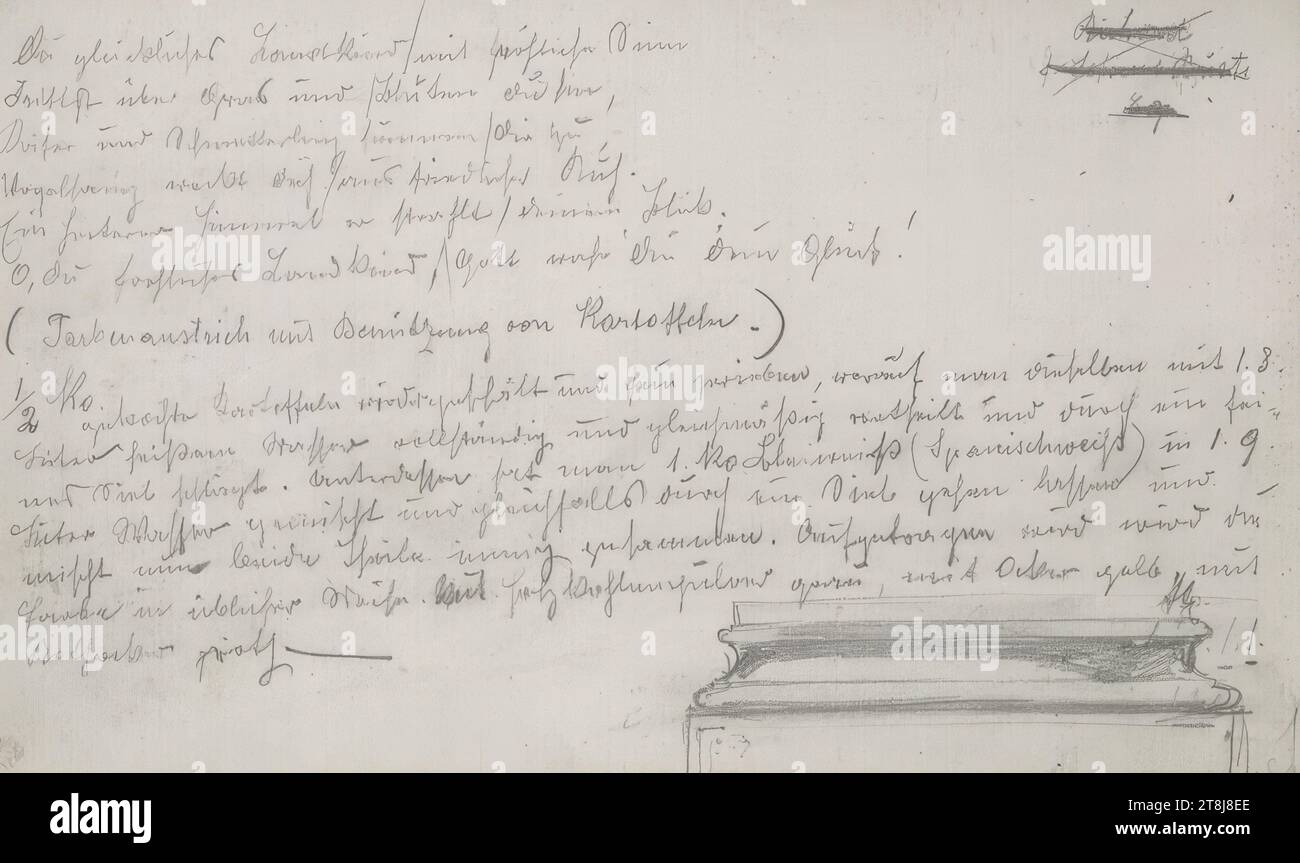 Du glückliches Landkind / mit fröhlichem Sinn
Trittst über Gras und Blüten du hin,
Käfer und Schmetterling summen / dir zu
Vogelsang weckt dich / aus friedlicher Ruh.
Ein heiterer Himmel er strahlt / deinem Blick.
O, du fröhliches Landkind, / Gott wahr' dir dein Glück!
(Farbenanstrich mit Benützung von Kartoffeln.)
1/2 Ko. gekochte Kartoffeln wird geschält und fein gerieben, worauf man dieselben mit 1.8.
Liter heißem Wasser vollständig und gleichmäßig vertheilt und durch ein fei-
nes Sieb schlägt. Unterdessen hat man 1. Ko (Spanischweiß) in 1.9.
Liter Wasser gemischt und gleichfalls durch ein Sieb gehen lassen und
mischt nun beide Theile innig zusammen. Aufgetragen wird wird die
Farbe in üblicher Weise. Mit Holzkohlenpulver grau, mit Ocker gelb, mit
roth
alamy
Image ID: 2T8J8EE
www.alamy.com